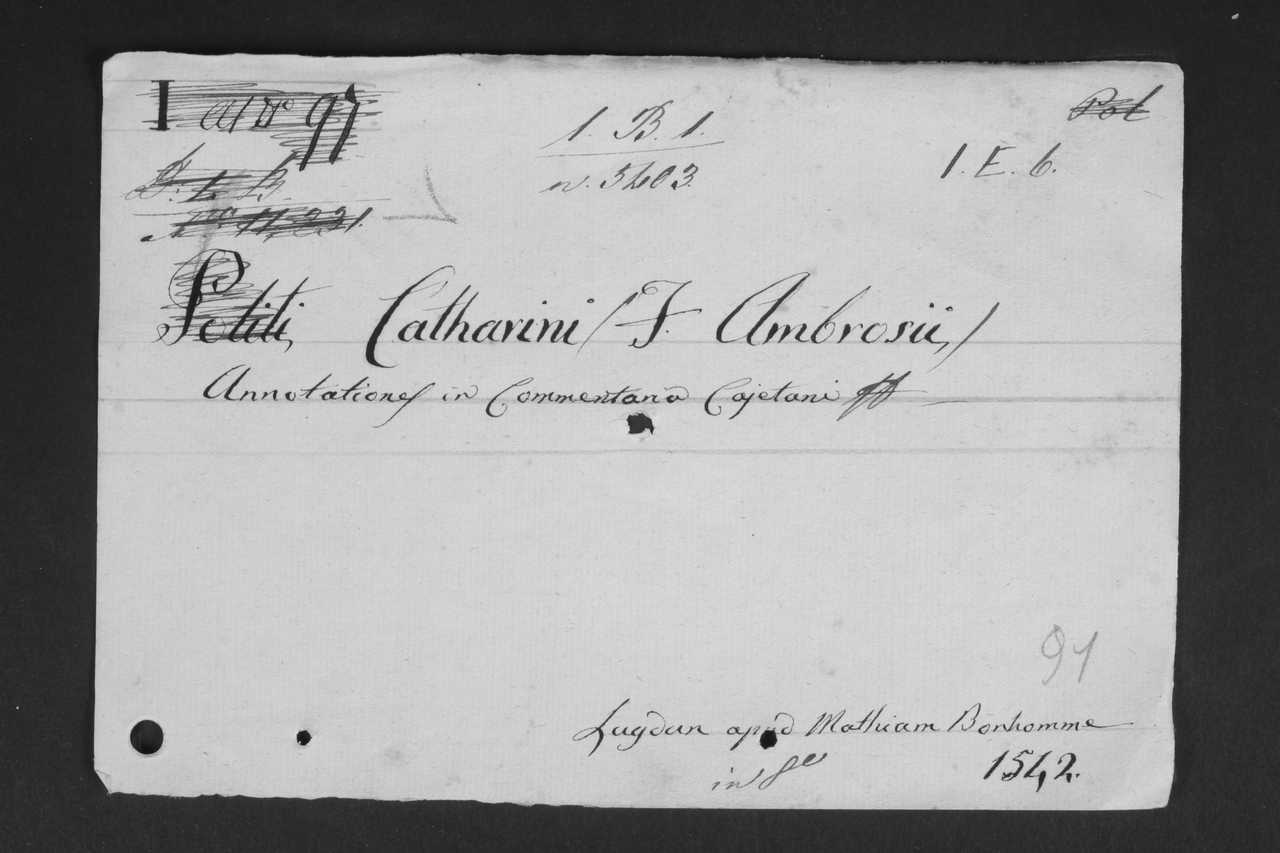 I 97
1. B. 1.
n. 5403.
Pol
1. E. 6.
Politi, Catharini (F. Ambrosii,)
Annotationes in Commentaria Cajetani
91
Lugdun apud Mathiam Bonhomme
in 8vo
1542.